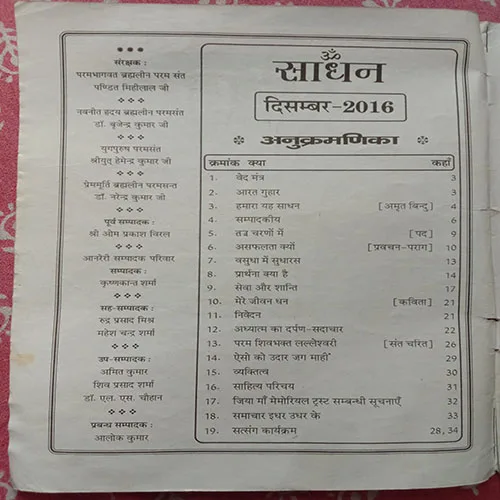 संरक्षक :
परमभागवत ब्रह्मलीन परम संत
पण्डित मिहीलाल जी
नवनीत हृदय ब्रह्मलीन परमसंत
डॉ. बृजेन्द्र कुमार जी
युगपुरुष परमसंत
श्रीयुत् हेमेन्द्र कुमार जी
प्रेममूर्ति ब्रह्मलीन परमसन्त
डॉ. नरेन्द्र कुमार जी
पूर्व सम्पादक :
श्री ओम प्रकाश विरल
आनरेरी सम्पादक परिवार
सम्पादक :
कृष्णकान्त शर्मा
सह-सम्पादक :
रुद्र प्रसाद मिश्र
महेश चन्द्र शर्मा
उप-सम्पादक :
अमित कुमार
शिव प्रसाद शर्मा
डॉ. एल. एस. चौहान
प्रबन्ध सम्पादक :
आलोक कुमार
ॐ
साधन
दिसम्बर-2016
अनुक्रमणिका
क्रमांक क्या कहाँ
1. वेद मंत्र 3
2. आरत गुहार 3
3. हमारा यह साधन [अमृत बिन्दु] 4
4. सम्पादकीय 6
5. तव चरणों में [पद] 9
6. असफलता क्यों [प्रवचन-पराग] 10
7. वसुधा में सुधारस 13
8. प्रार्थना क्या है 14
9. सेवा और शान्ति 17
10. मेरे जीवन धन [कविता] 21
11. निवेदन 21
12. अध्यात्म का दर्पण-सदाचार 22
13. परम शिवभक्त लल्लेश्वरी [संत चरित] 26
14. ऐसो को उदार जग माहीं 29
15. व्यक्तित्व 30
16. साहित्य परिचय 31
17. जिया माँ मेमोरियल ट्रस्ट सम्बन्धी सूचनाएँ 32
18. समाचार इधर उधर के 33
19. सत्संग कार्यक्रम 28, 34